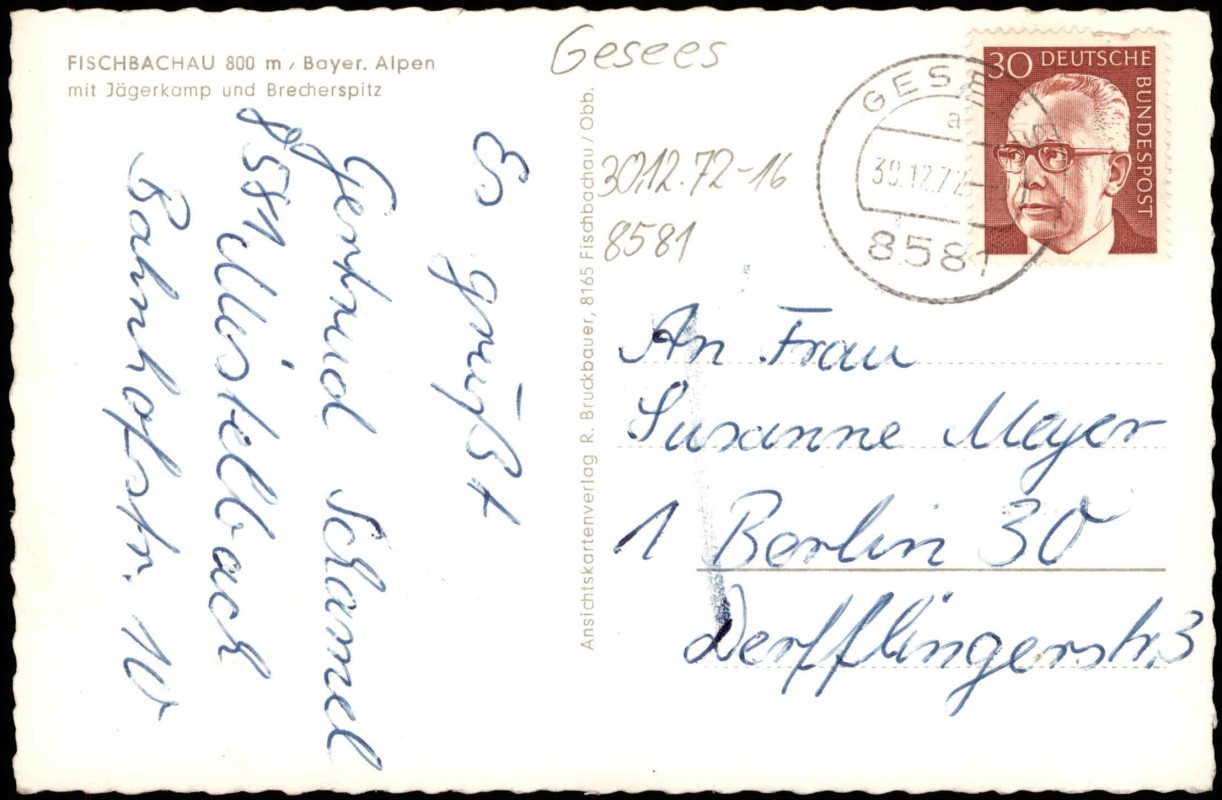 FISCHBACHAU 800 m / Bayer. Alpen
mit Jägerkamp und Brecherspitz
Gesees
30.12.72-16
8581
GESEES
a
30.12.72-
8581
30 DEUTSCHE
BUNDESPOST
Es grüßt
Gertrud Schamel
8581 Mistelbach
Bahnhofstr. 10
Ansichtskartenverlag R. Bruckbauer, 8165 Fischbachau/Obb.
An Frau
Susanne Meyer
1 Berlin 30
Derfflingerstr. 3